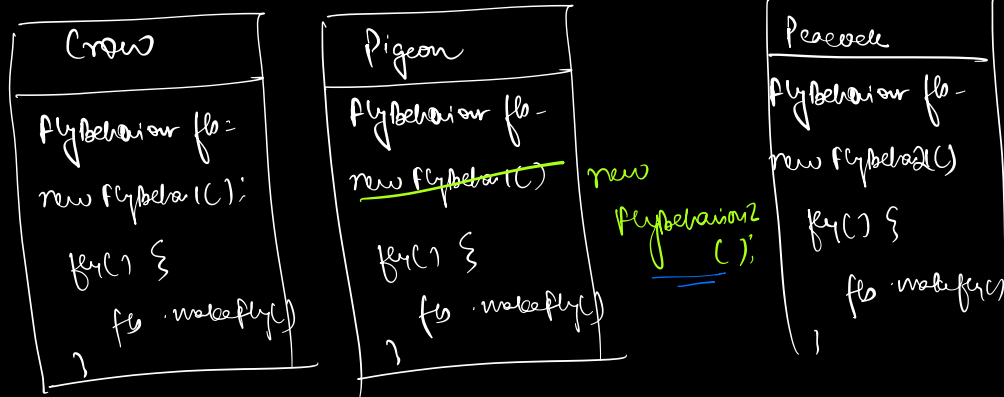 Crow
FlyBehaiour fb =
new FlyBeha1();
fly() {
fb . makefly()
}
Pigeon
FlyBehaiour fb -
new FlyBeha1()
fly() {
fb . makefly()
}
new
FlyBehaiour2
();
Peacock
FlyBehaiour fb -
new FlyBeha2()
fly() {
fb . makefly()
}